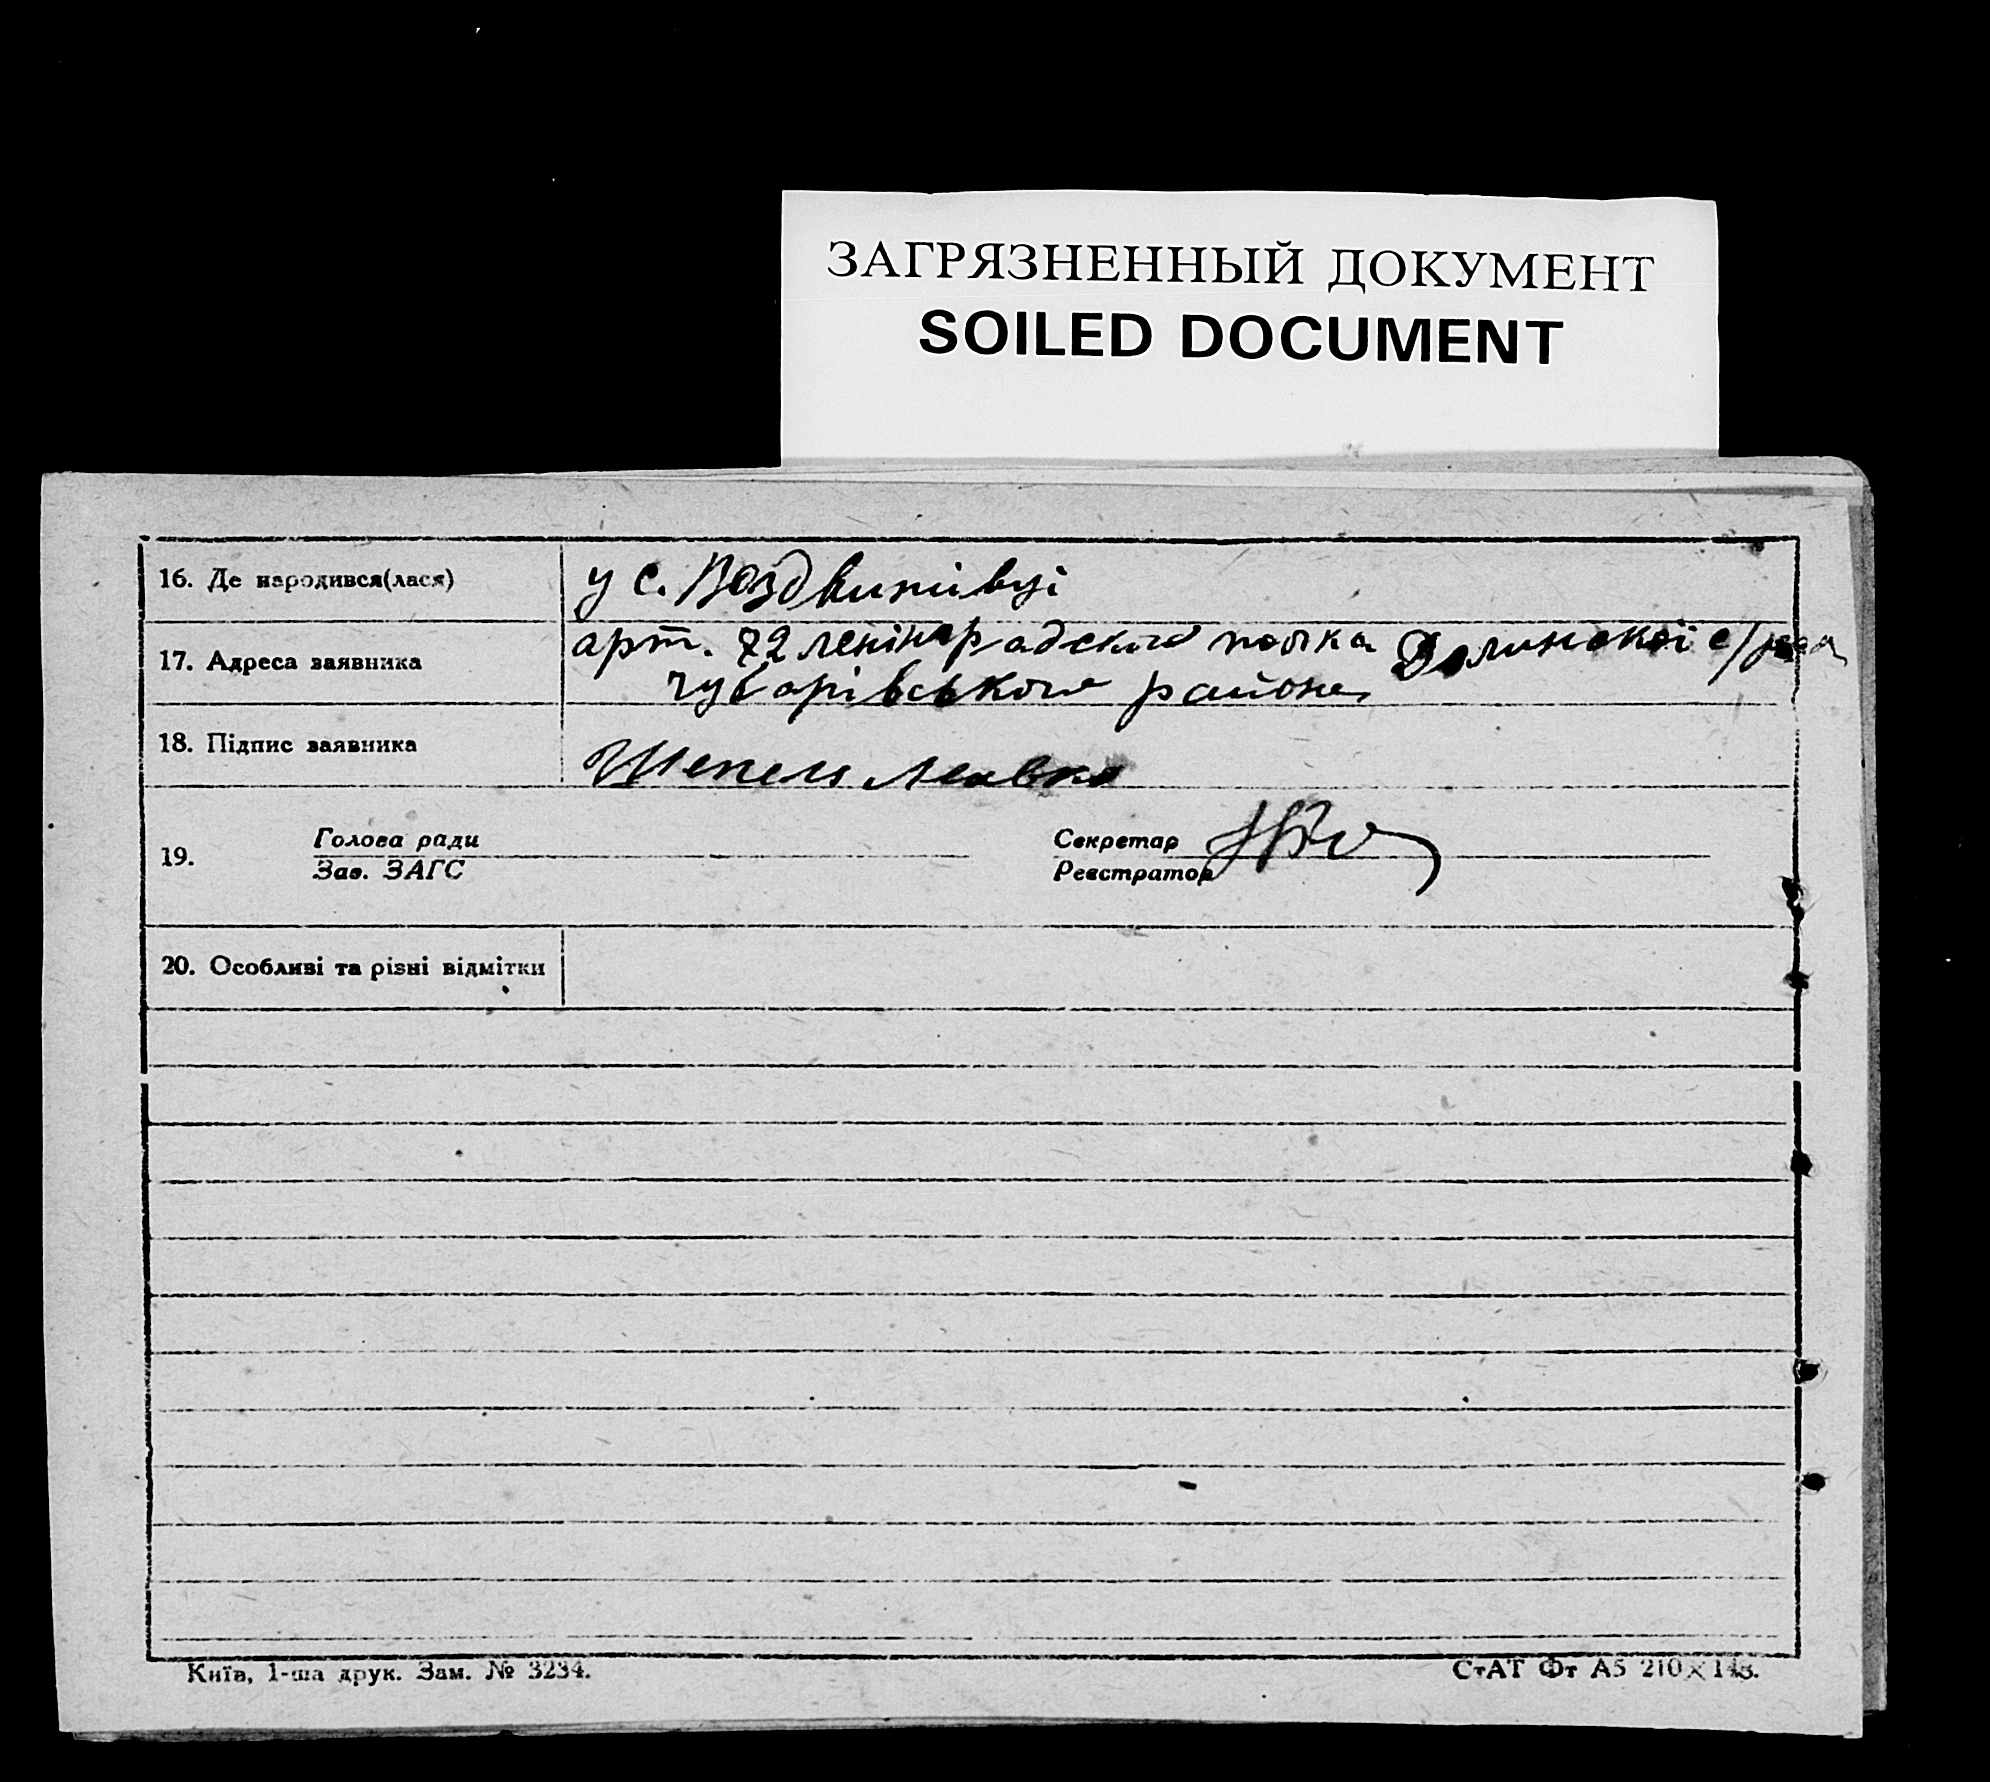 ЗАГРЯЗНЕННЫЙ ДОКУМЕНТ
SOILED DOCUMENT
16. Де народився(лася)
у с. Воздвижівці
17. Адреса заявника
арт. 72 ленінградского полка Долинскої с/рада
чубарівського района
18. Підпис заявника
Шепель
19.
Голова ради
Зав. ЗАГС
Секретар
Реєстратор
20. Особливі та різні відмітки
Київ, 1-ша друк. Зам. № 3234.
СтАТ Фт А5 210×148.